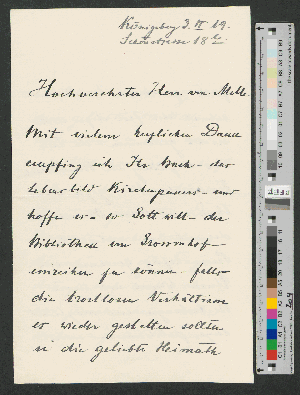 Königsberg 3. II 19.
Schönstrasse 18 a
Hochverehrter Herr von Melle.
Mit vielem herzlichen Dank
empfing ich Ihr Buch – das
Lebensbild Kirchenpauers – und
hoffe es – so Gott will – der
Bibliothek von
einreihen zu können, falls
die trostlosen Verhältnisse
es wieder gestatten sollten
in die geliebte Heimath